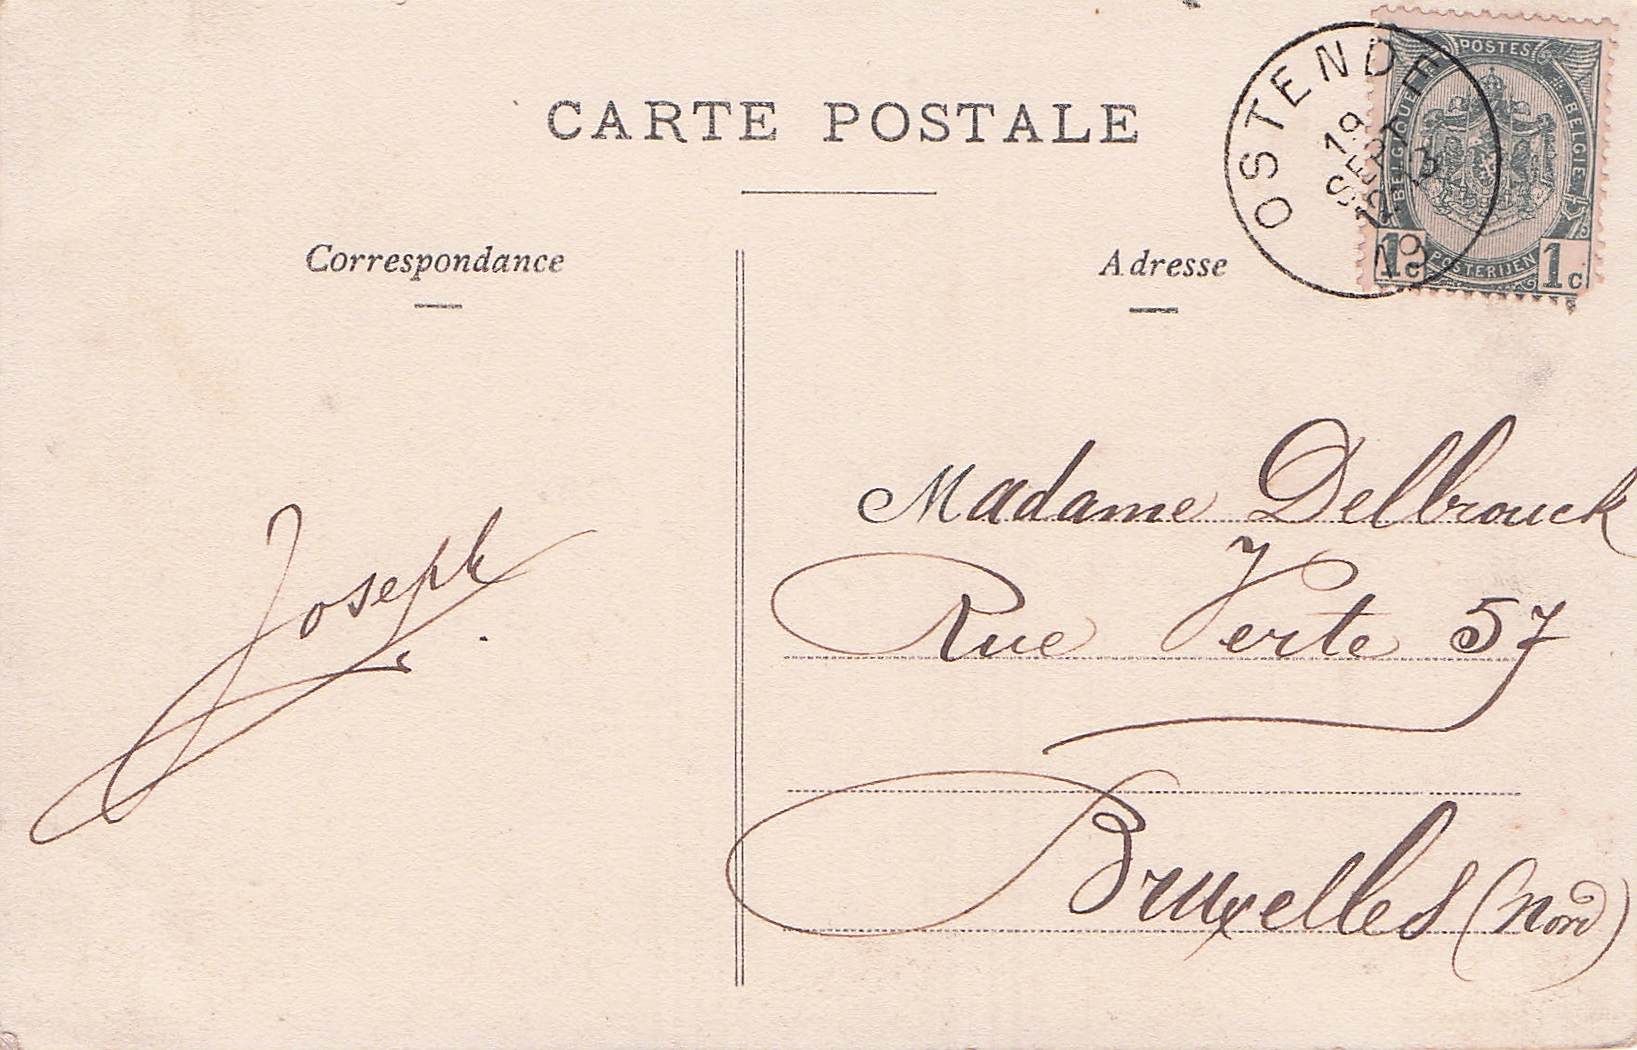 CARTE POSTALE
Correspondance
Adresse
OSTENDE
19
SEPT
12
POSTES
BELGIQUE
BELGIE
1c
POSTERIJEN
1c
Madame Delbrouck
Rue Verte 57
Bruxelles (Nord)
Joseph